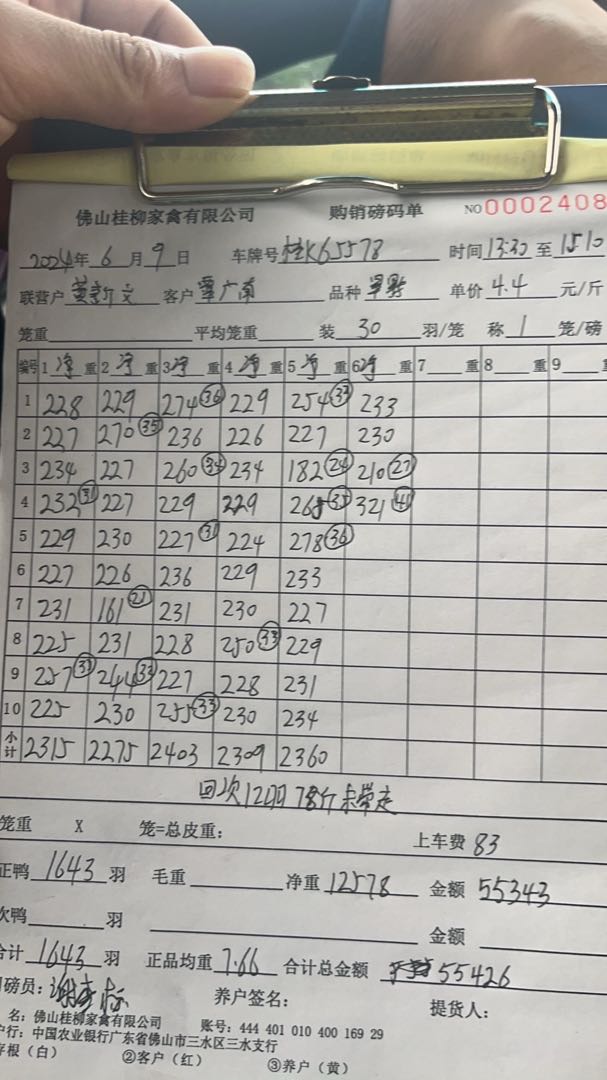 佛山桂柳家禽有限公司 购销磅码单 NO 0002408
2024年 6 月 9 日 车牌号 桂K65578 时间 13:30 至 1510
联营户 客户 覃广南 品种 单价 4.4 元/斤
笼重 平均笼重 装 30 羽/笼 称 1 笼/磅
编号 1 净 重 2 净 重 3 净 重 4 净 重 5 净 重 6 净 重 7 重 8 重 9
1 228 229 274 36 229 254 33 233
2 227 270 35 236 226 227 230
3 234 227 260 34 234 182 24 210 27
4 232 31 227 229 229 265 35 321 41
5 229 230 227 31 224 278 36
6 227 226 236 229 233
7 231 161 21 231 230 227
8 225 231 228 250 33 229
9 257 33 244 33 227 228 231
10 225 230 255 33 230 234
小计 2315 2275 2403 2309 2360
回次12羽78斤未带走
笼重 X 笼=总皮重: 上车费 83
正鸭 1643 羽 毛重 净重 12578 金额 55343
次鸭 羽 金额
合计 1643 羽 正品均重 7.66 合计总金额 55426
磅员: 养户签名: 提货人:
名: 佛山桂柳家禽有限公司 账号: 444 401 010 400 169 29
户行: 中国农业银行广东省佛山市三水区三水支行
存根(白) ②客户(红) ③养户(黄)